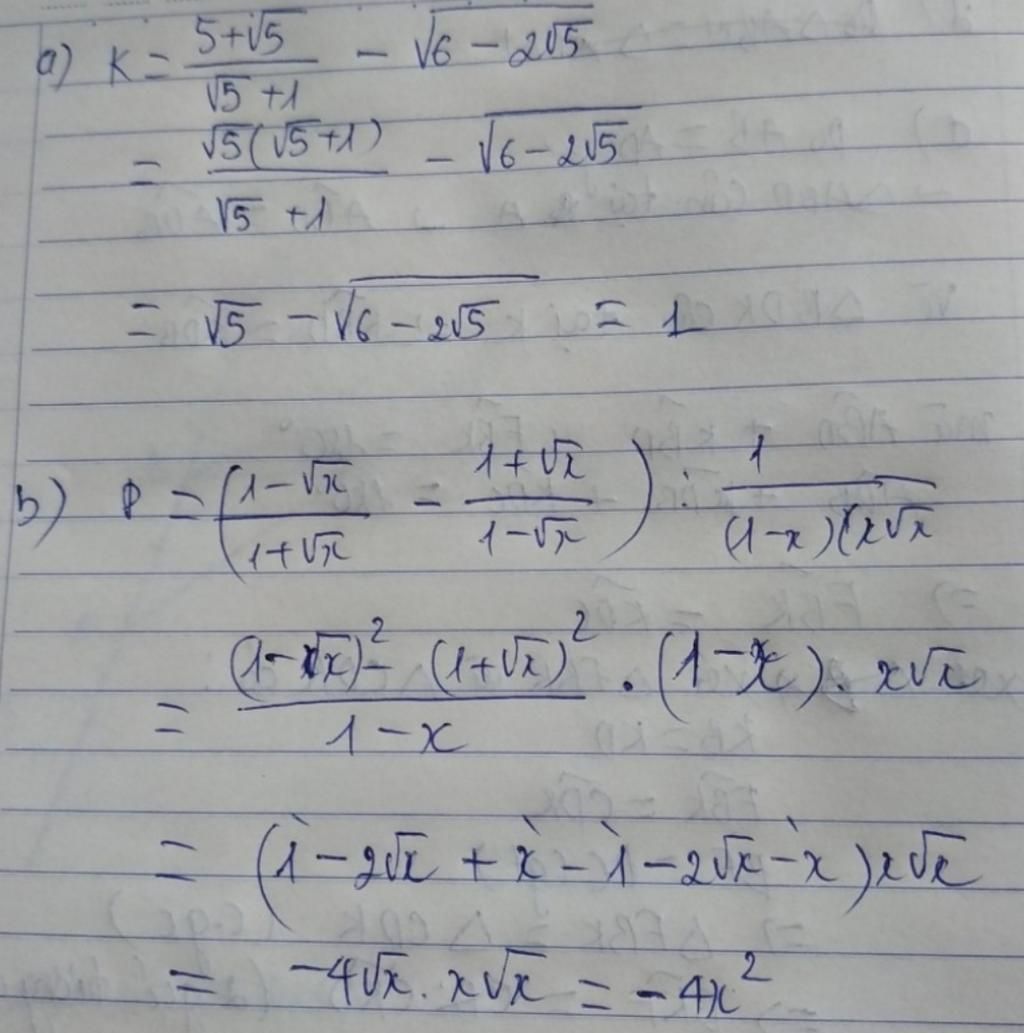 a) K = \frac{5+\sqrt{5}}{\sqrt{5}+1} - \sqrt{6-2\sqrt{5}}
= \frac{\sqrt{5}(\sqrt{5}+1)}{\sqrt{5}+1} - \sqrt{6-2\sqrt{5}}
= \sqrt{5} - \sqrt{6-2\sqrt{5}} = 1
b) P = (\frac{1-\sqrt{x}}{1+\sqrt{x}} = \frac{1+\sqrt{x}}{1-\sqrt{x}}) : \frac{1}{(1-x)(x\sqrt{x}}
= \frac{(1-\sqrt{x})^2 - (1+\sqrt{x})^2}{1-x} . (1-x) . x\sqrt{x}
= (1-2\sqrt{x}+x-1-2\sqrt{x}-x)x\sqrt{x}
= -4\sqrt{x} . x\sqrt{x} = -4x^2